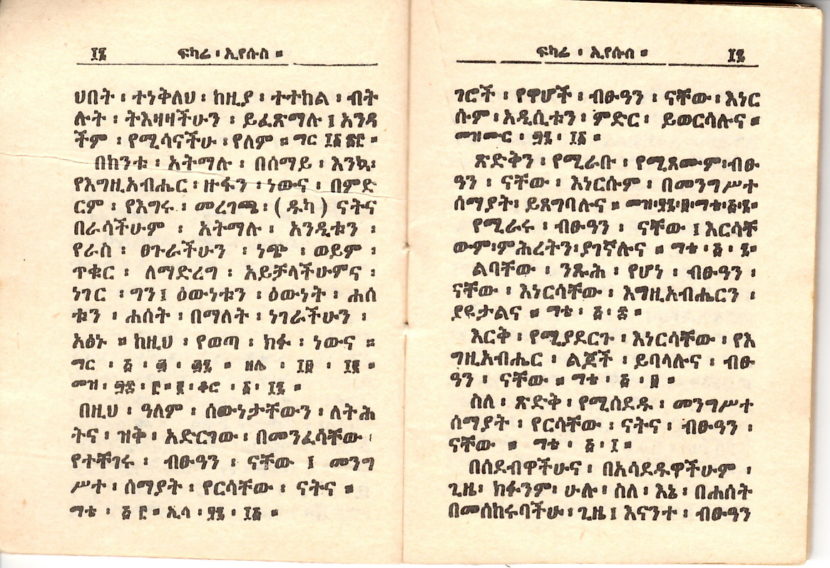 ፲፮ ፍካሬ ፡ ኢየሱስ ።
ህበት ፡ ተነቅለህ ፡ ከዚያ ፡ ተተከል ፡ ብት
ሉት ፡ ትእዛዛችሁን ፡ ይፈጽማሉ ፤ አንዳ
ችም ፡ የሚሳናችሁ ፡ የለም ። ማር ፲፩
በከንቱ ፡ አትማሉ ፡ በሰማይ ፡ እንኳ፡
የእግዚአብሔር ፡ ዙፋን ፡ ነውና ፡ በምድ
ርም ፡ የእግሩ ፡ መረገጫ፡ (ዱካ) ናትና
በራሳችሁም ፡ አትማሉ ፡ አንዲቱን ፡
የራስ ፡ ፀጉራችሁን ፡ ነጭ ፡ ወይም ፡
ጥቁር ፡ ለማድረግ ፡ አይቻላችሁምና ፡
ነገር ፡ ግን፤ ዕውነቱን ፡ ዕውነት ፡ ሐሰ
ቱን ፡ ሐሰት ፡ በማለት ፡ ነገራችሁን ፡
አፅኑ ። ከዚህ ፡ የወጣ ፡ ክፉ ፡ ነውና ።
ማር ፡ ፭ ፡ ፴ ፡ ፴፯ ። ዘሌ ፡ ፲፱ ፡ ፲፪ ።
መዝ ፡ ፡ ፪ ፡ ቆሮ ፡ ፩ ፡ ፲፯ ።
በዚህ ፡ ዓለም ፡ ሰውነታቸውን ፡ ለትሕ
ትና ፡ ዝቅ ፡ አድርገው ፡ በመንፈሳቸው ፡
የተቸገሩ ፡ ብፁዓን ፡ ናቸው ፤ መንግ
ሥተ ፡ ሰማያት ፡ የርሳቸው ፡ ናትና ።
ማቴ ፡ ፭ ፫ ። ኢሳ ፡ ፶፯ ፡ ፲፭ ።
ፍካሬ ፡ ኢየሱስ ። ፲፯
ገሮች ፡ የዋሆች ፡ ብፁዓን ፡ ናቸው ፡ እነር
ሱም ፡ አዲሲቱን ፡ ምድር ፡ ይወርሳሉና ።
መዝሙር ፡ ፴፮ ፡ ፲፩ ።
ጽድቅን ፡ የሚራቡ ፡ የሚጸሙም፡ብፁ
ዓን ፡ ናቸው ፡ እነርሱም ፡ በመንግሥተ
ሰማያት፡ ይጸግባሉና ። ማቴ፡፭፡፮፡
የሚራሩ ፡ ብፁዓን ፡ ናቸው ፤ እርሳቸ
ውም፡ምሕረትን፡ያገኛሉና ። ማቴ ፡ ፭ ፡ ፯፡
ልባቸው ፡ ንጹሕ ፡ የሆነ ፡ ብፁዓን ፡
ናቸው ፡ እነርሳቸው ፡ እግዚአብሔርን ፡
ያዩታልና ። ማቴ ፡ ፭ ፡ ፰ ፡
እርቅ ፡ የሚያደርጉ ፡ እነርሳቸው ፡ የእ
ግዚአብሔር ፡ ልጆች ፡ ይባላሉና ፡ ብፁ
ዓን ፡ ናቸው ። ማቴ ፡ ፭ ፡ ፱ ፡
ስለ ፡ ጽድቅ ፡ የሚሰደዱ ፡ መንግሥተ
ሰማያት ፡ የርሳቸው ፡ ናትና ፡ ብፁዓን ፡
ናቸው ። ማቴ ፡ ፭ ፡ ፲ ፡
በሰደብዋችሁና ፡ በአሳደዱዋችሁም ፡
ጊዜ፡ ክፉንም፡ ሁሉ ፡ ስለ ፡ እኔ ፡ በሐሰት
በመሰከሩባችሁ ፡ ጊዜ ፤ እናንተ ፡ ብፁዓን